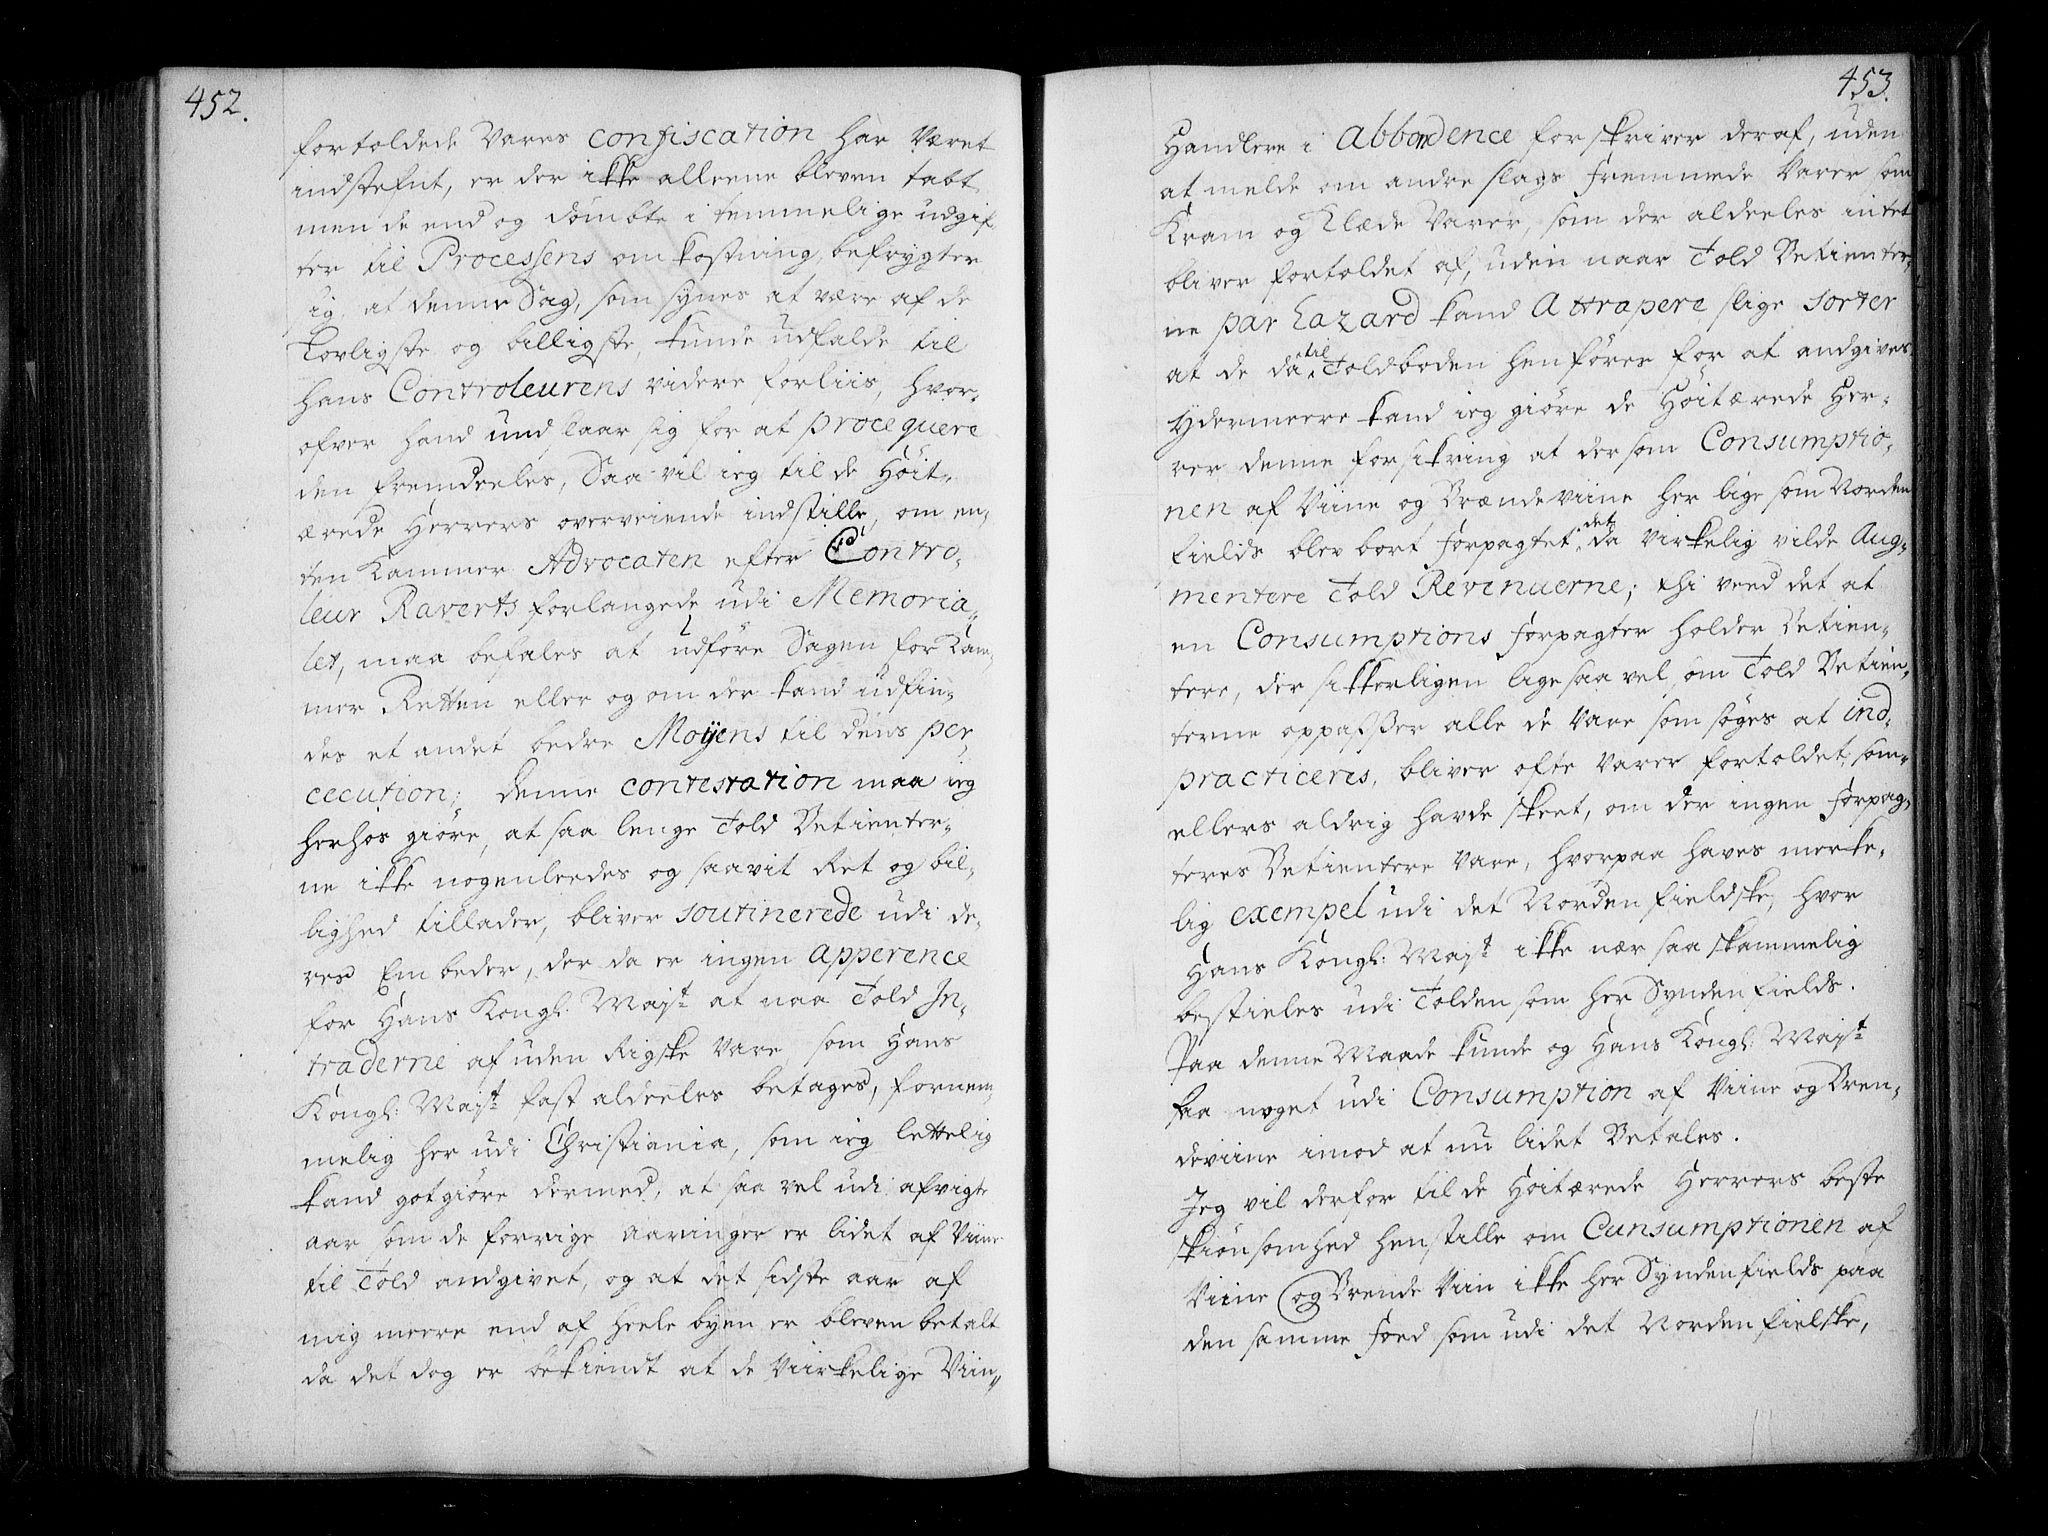 452.
fortoldede Vares confiscation har Været
indstefnt, er der ikke alleene bleven tabt
men de end og dömbte i temmelige udgif„
ter til Processens omkostning, befrygter
ig, at denne Sag, som synes at være af de
Lovligste og billigste, kunde udfalde til
hans Controleurens videre forliis, hvor„
ofver hand und slaar sig for at procequere
den fremdeeles, Saa vil ieg til de Höit„
ærede Herrers overveiende indstille, om en„
ten Kammer Advocaten efter Contro„
leur Raverts forlangede udi Memoria„
let, maa befales at udföre Sagen for Kam„
mer Retten eller og om der kand udfin„
des et andet bedre Moÿens til dens per„
cecution; denne contestation maa ieg
herhos giöre, at saa lenge Told Betienter„
ne ikke nogenleedes og saavit Ret og bil„
lighed tillader, bliver soutinerede udi de„
res Embeder, der da er ingen apperence
for Hans Kongl: Majt at naa Told In„
traderne af uden Rigske Vare som Hans
Kongl: Majt fast aldeeles betages, fornem„
melig her udi Christiania, som ieg lettelig
kand gotgiöre dermed, at saa vel udi afvigte
aar som de forrige aaringer er lidet af Viine
til Told andgivet, og at det sidste aar af
mig meere end af heele byen er bleven betalt
da det dog er bekiendt at de Viirkelige Viin„
453.
Handlere i abbondence forskriver deraf, uden
at melde om andre slags fremmede Varer som
Kram og Klæde Varer, som der aldeeles intet
bliver fortoldet af, uden naar Told Betienter„
ne par hazard kand Attrapere slige sorter
at de da til Toldboden henföres for at andgives
Ydermeere kand ieg giöre de Höitærede Her„
rer denne forsikring at dersom Consumptio„
nen af Viine og Brændeviine her lige som Norden
fields blev bort forpagtet, det da virkelig vilde Aug„
mentere Told Revenuerne; thi veed det at
en Consumptions forpagter holder Betien„
tere, der sikkerligen lige saa vel som Told Betien„
terne oppasser alle de Vare som söges at ind„
practiceres, bliver ofte Varer fortoldet, som„
ellers aldrig havde skeet, om der ingen forpag„
teres Betientere Vare, hvorpaa haves merke„
lig exempel udi det Nordenfieldske, hvor
Hans Kongl: Majt ikke nær saa skammelig
bestieles udi Tolden som her Syndenfields.
Paa denne Maade kunde og Hans Kongl: Majt
faa noget udi Consumption af Viine og Bren„
deviine imod at nu lidet Betales.
Jeg vil derfor til de Höitærede Herrers beste
skiönsomhed henstille om Cunsumptionen af
Viine og Brende Viin ikke her Syndenfields paa
den samme foed som udi det Nordenfielske,